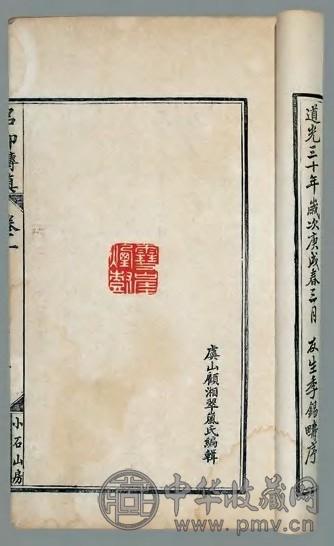 道光三十年歲次庚戌春三月 友生季錫疇序
虞山顧湘翠嵐氏編輯
名印傳真 卷一
小石山房
中华收藏网
www.pmv.cn